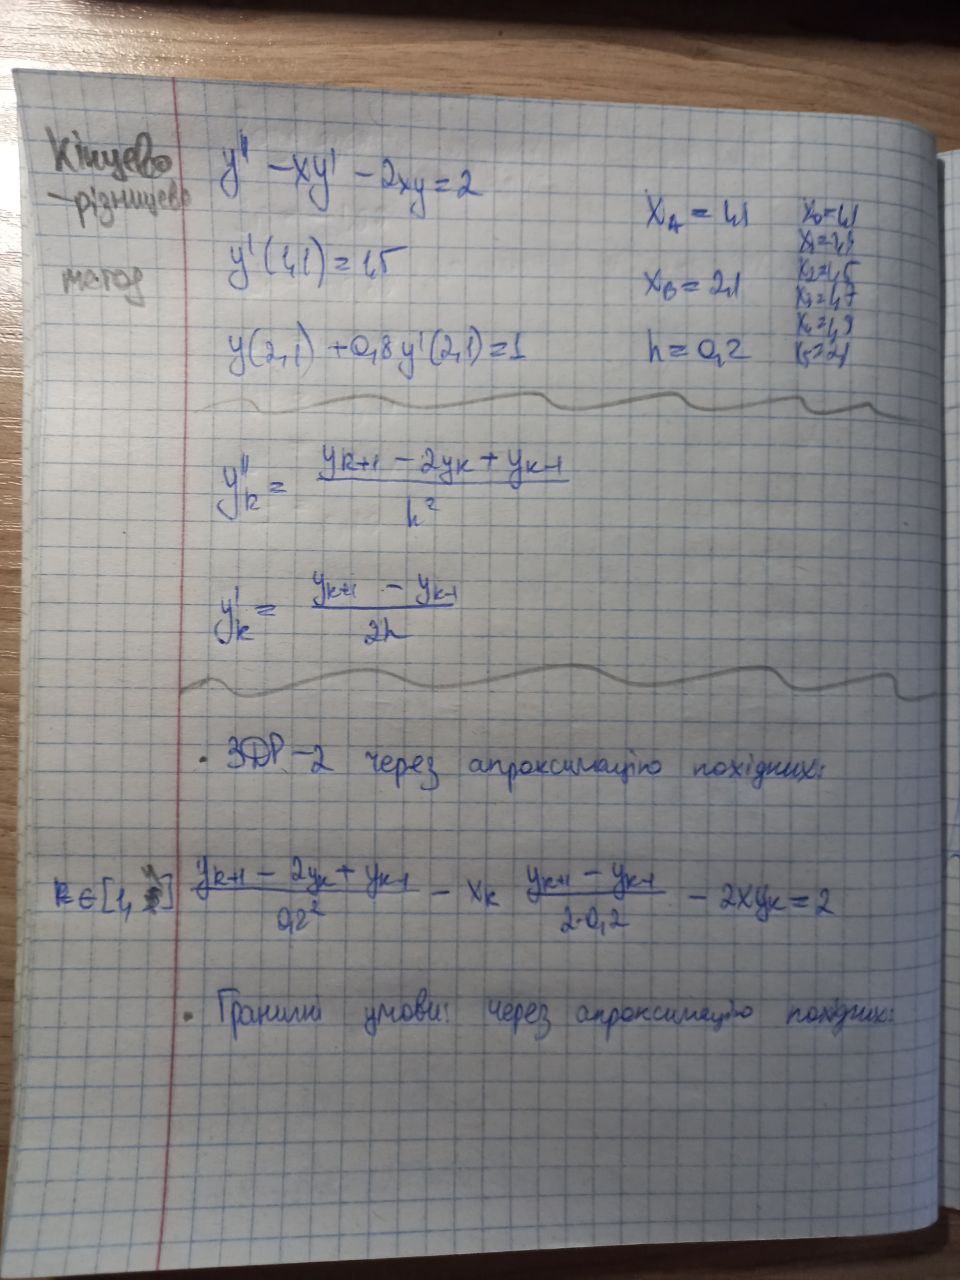 Кінцево
-різницево
метод
y'' - xy' - 2xy = 2
y'(1,1) = 1,5
y(2,1) + 0,8y'(2,1) = 1
x_A = 1,1
x_B = 2,1
h = 0,2
x₀ = 1,1
x₁ = 1,3
x₂ = 1,5
x₃ = 1,7
x₄ = 1,9
x₅ = 2,1
y''_k = (y_{k+1} - 2y_k + y_{k-1}) / h²
y'_k = (y_{k+1} - y_{k-1}) / 2h
• ЗДР-2 через апроксимацію похідних:
k ∈ [1, ] (y_{k+1} - 2y_k + y_{k-1}) / 0,2² - x_k (y_{k+1} - y_{k-1}) / 2·0,2 - 2xy_k = 2
• Граничні умови: через апроксимацію похідних: